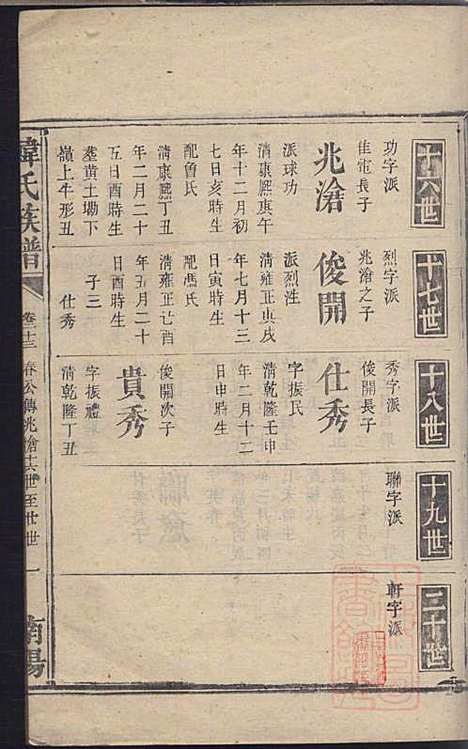 十六世
功字派
佳電長子
兆滄
派球功
清康熙庚午
年十二月初
七日亥時生
配魯氏
清康熙丁丑
年二月二十
五日酉時生
塟黃土塅下
嶺上牛形丑
十七世
烈字派
兆滄之子
俊開
派烈性
清雍正庚戌
年七月十三
日寅時生
配馮氏
清雍正己酉
年五月二十
日酉時生
子三
仕秀
十八世
秀字派
俊開長子
仕秀
字振民
清乾隆壬申
年二月十二
日申時生
俊開次子
貴秀
字振禮
清乾隆丁丑
十九世
聯字派
二十世
軒字派
韓氏族譜
卷十三
春公傳兆滄十六世至廿世
一
南陽